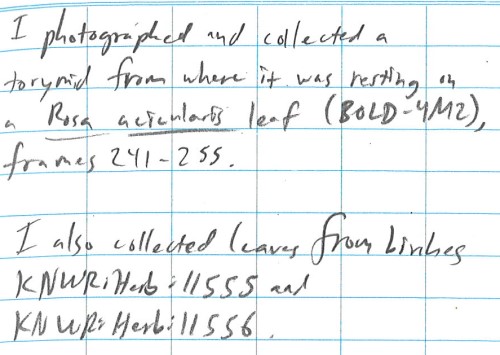 I photographed and collected a
torymid from where it was resting on
a Rosa acicularis leaf (BOLD-4M2),
frames 241-255.
I also collected leaves from birches
KNWR:Herb:11555 and
KNWR:Herb:11556.